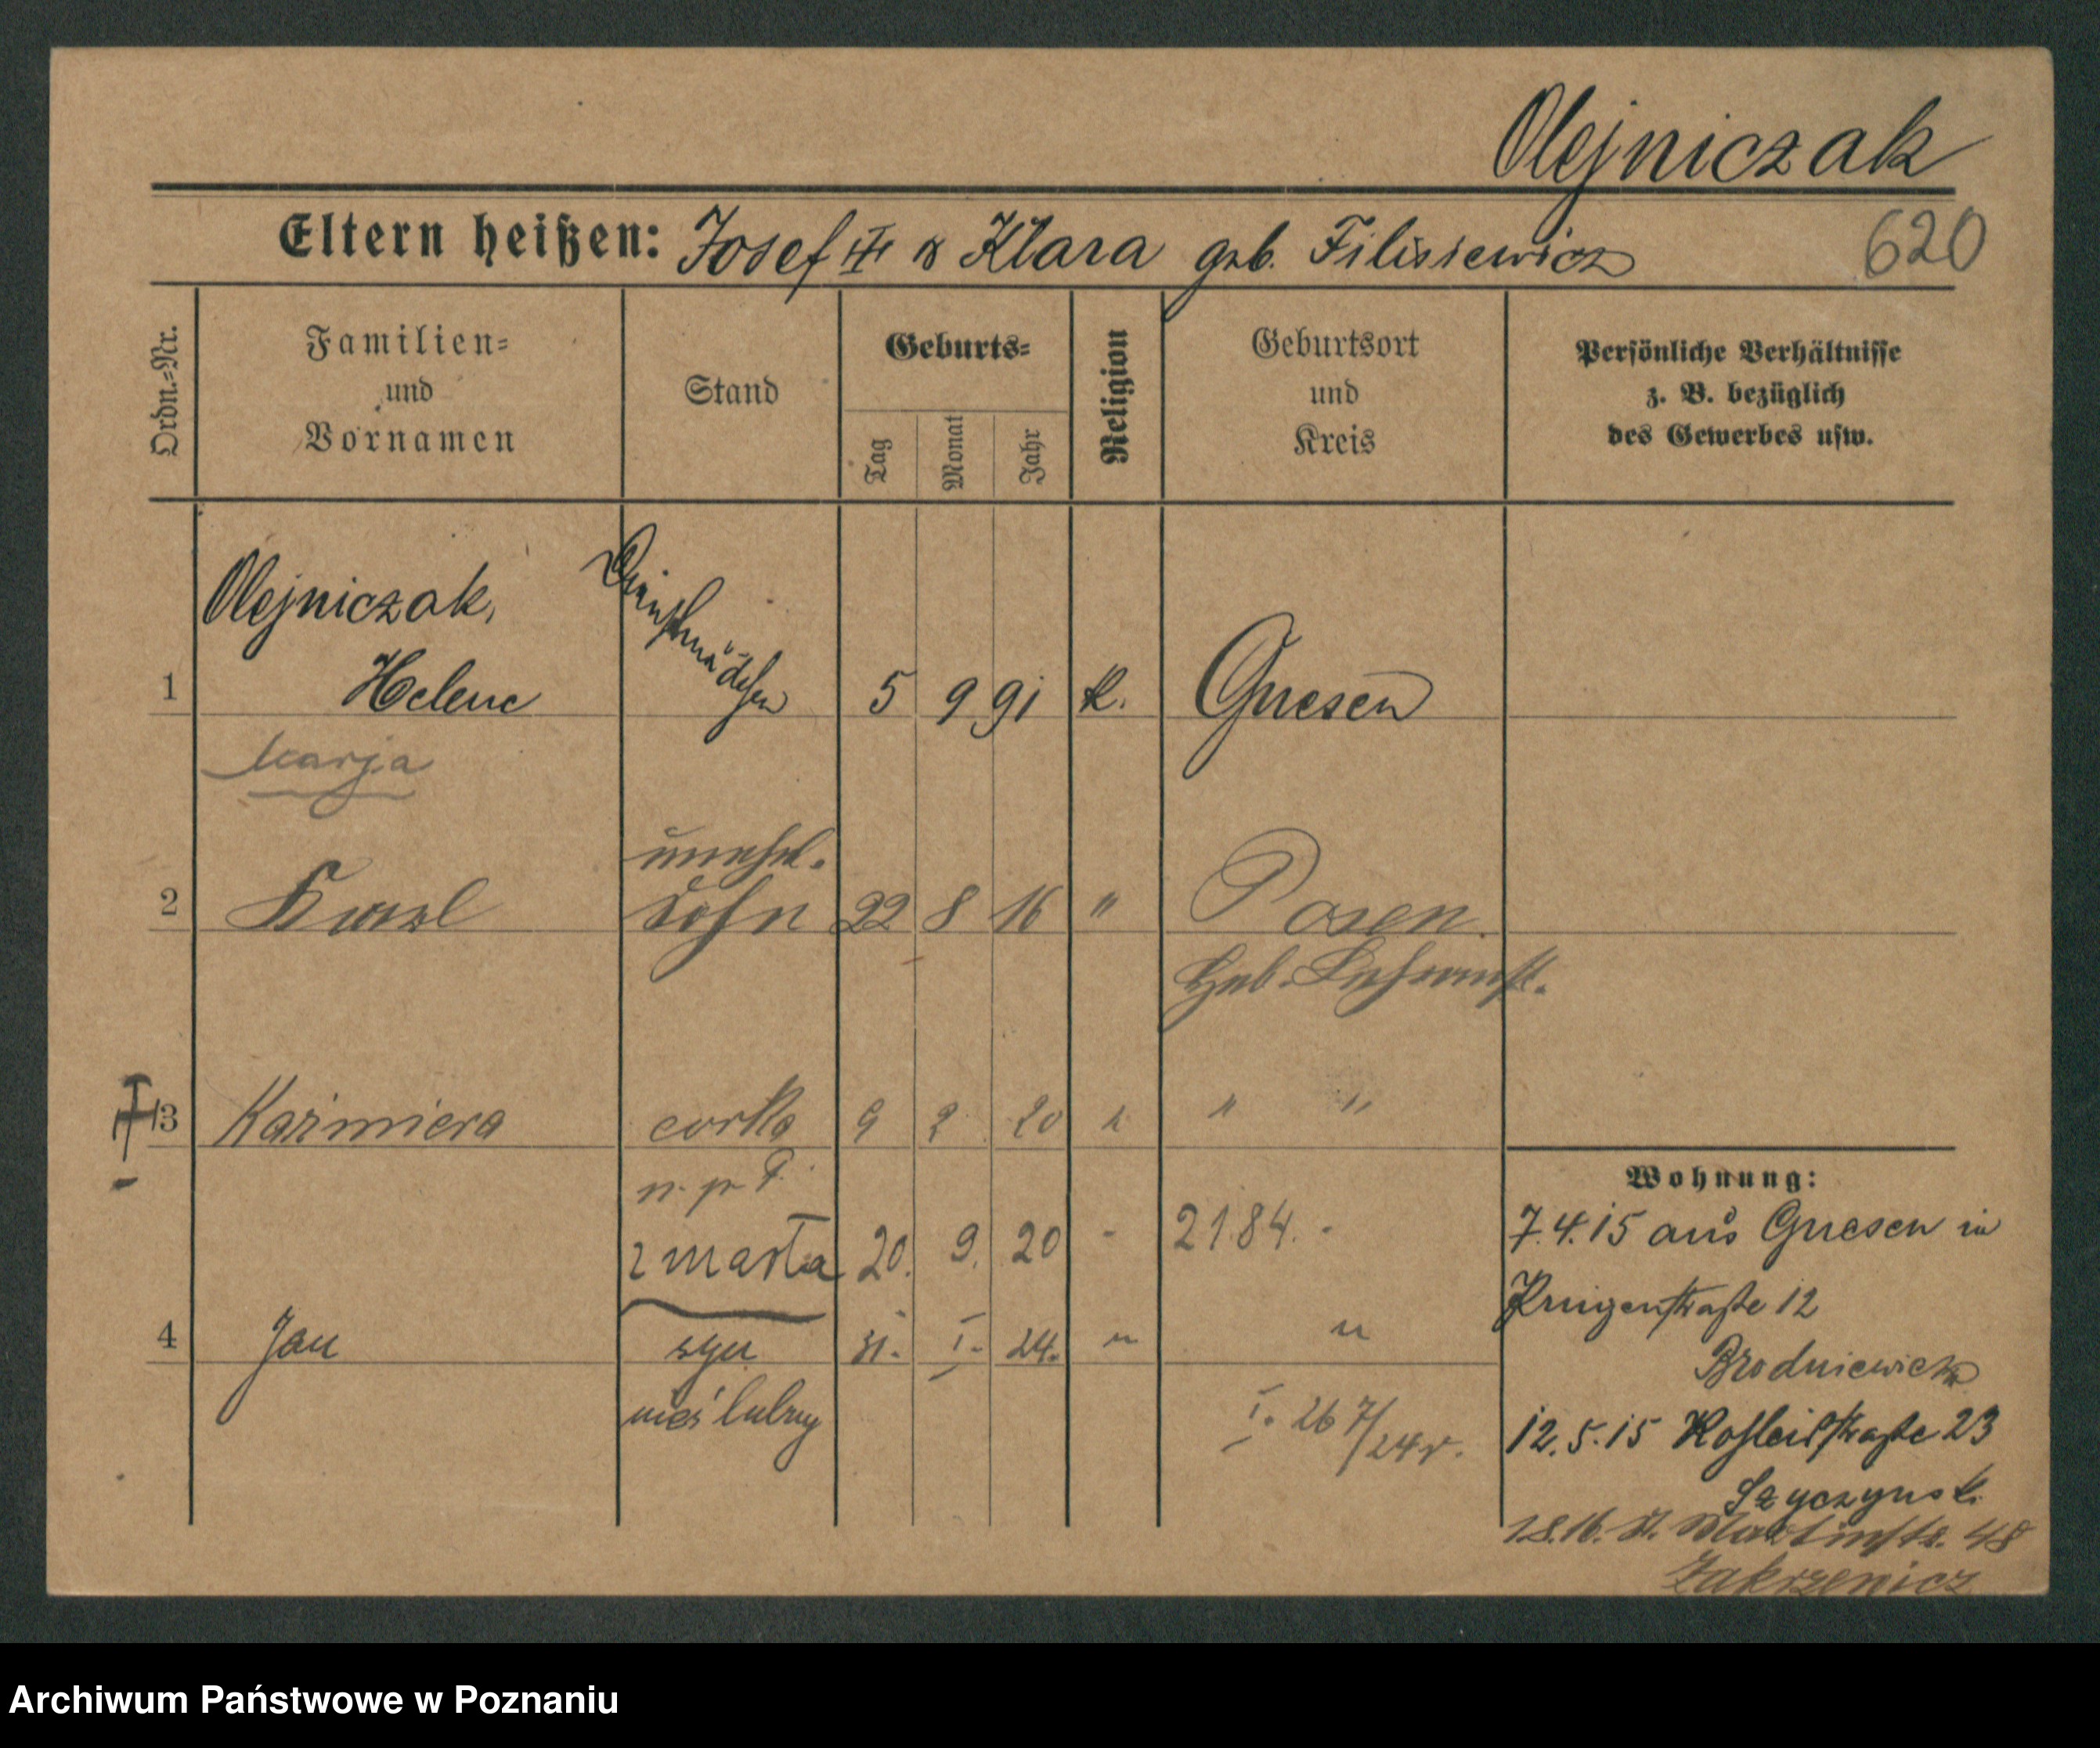 Olejniczak
Eltern heißen: Josef & Klara geb. Filisiewicz 620
Ordn.-Nr.
Familien=
und
Vornamen
Stand
Geburts=
Tag
Monat
Jahr
Religion
Geburtsort
und
Kreis
Persönliche Verhältnisse
z. B. bezüglich
des Gewerbes usw.
1 Olejniczak,
Helene Dienstmädchen 5 9 91 k. Gnesen
Marja
unehel.
2 Karl Sohn 22 8 16 " Posen.
Geb.
3 Kazimiera corka 9 2 20 " " "
zmarła 20. 9. 20 - 2184. -
4 Jan syn 31. I. 24. " "
nieślubny
I. 267/24r.
Wohnung:
7.4.15 aus Gnesen in
12
Brodniewicz
12.5.15 23
Szyczynsk
St. Martinstr. 48
Zakrzewicz
Archiwum Państwowe w Poznaniu